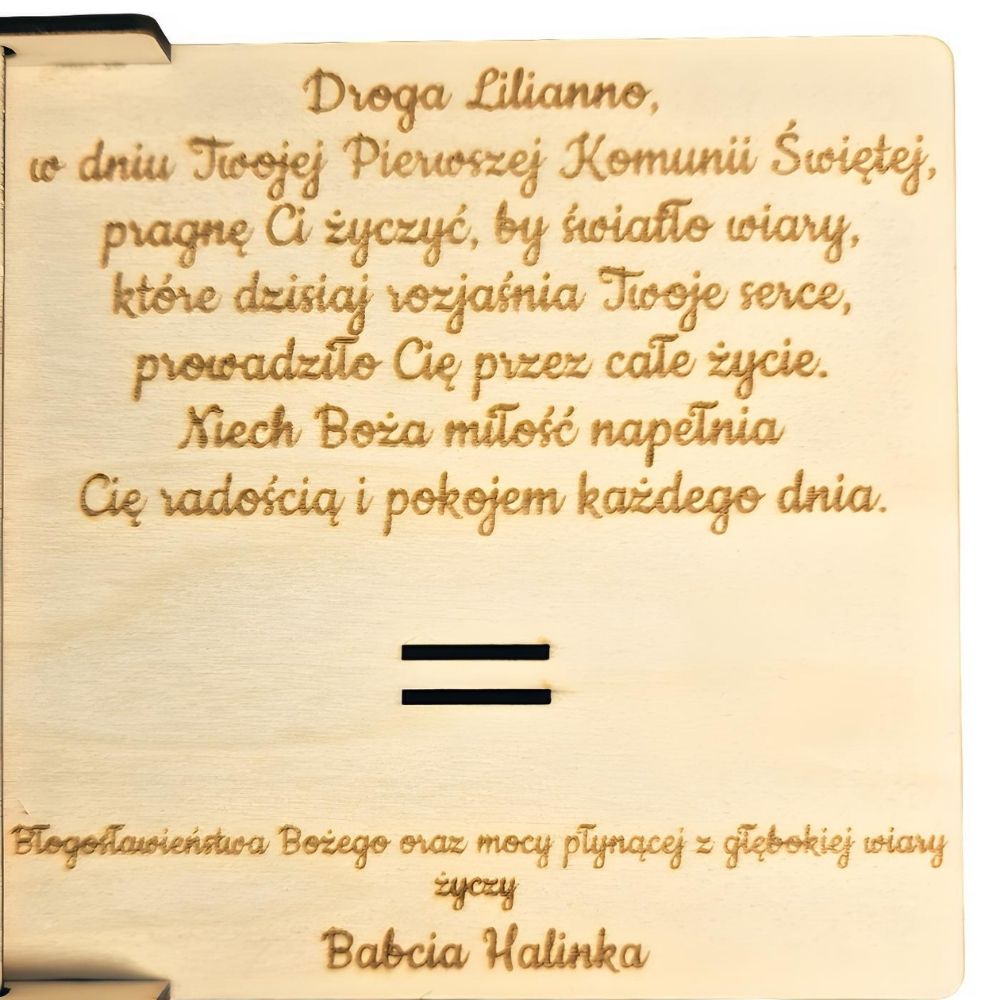 Droga Lilianno,
w dniu Twojej Pierwszej Komunii Świętej,
pragnę Ci życzyć, by światło wiary,
które dzisiaj rozjaśnia Twoje serce,
prowadziło Cię przez całe życie.
Niech Boża miłość napełnia
Cię radością i pokojem każdego dnia.
Błogosławieństwa Bożego oraz mocy płynącej z głębokiej wiary
życzy
Babcia Halinka